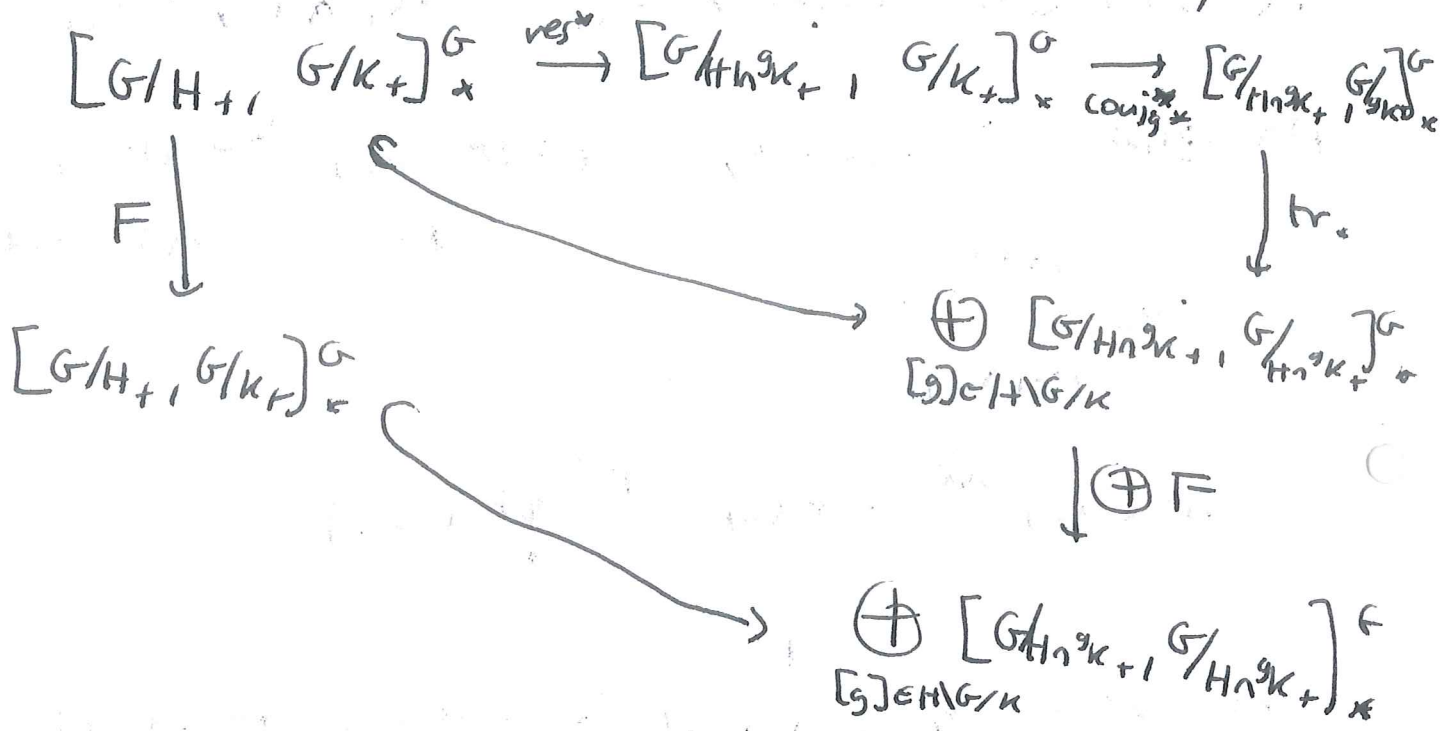 [G/H₊, G/K₊]^G_* res* → [G/H∩ᵍK₊, G/K₊]^G_* → conj_g* [G/H∩ᵍK₊, G/ᵍK₊]^G_*
F tr_*
⊕ [G/H∩ᵍK₊, G/H∩ᵍK₊]^G_*
[g]∈H\G/K
[G/H₊, G/K₊]^G_*
⊕ F
⊕ [G/H∩ᵍK₊, G/H∩ᵍK₊]^G_*
[g]∈H\G/K